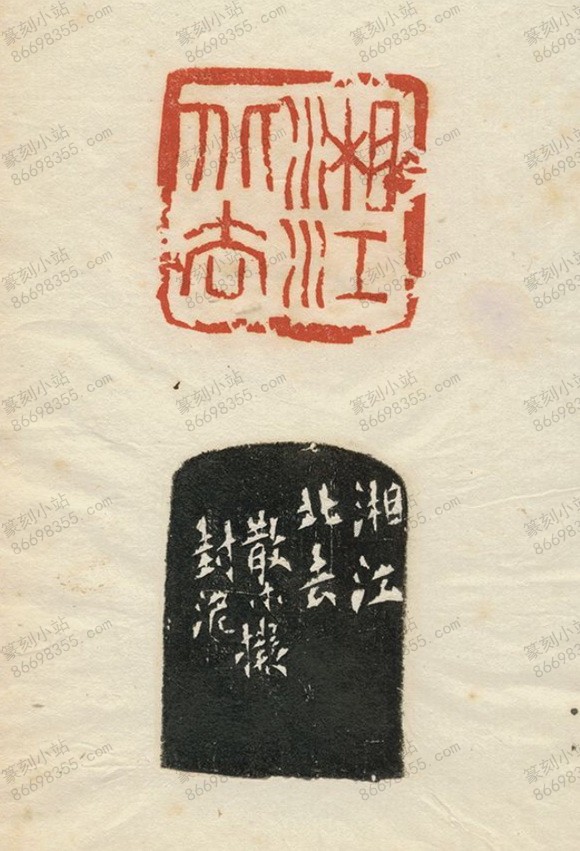 湘江
北去
湘江
北去
散木擬
封泥
篆刻小站
86698355.com